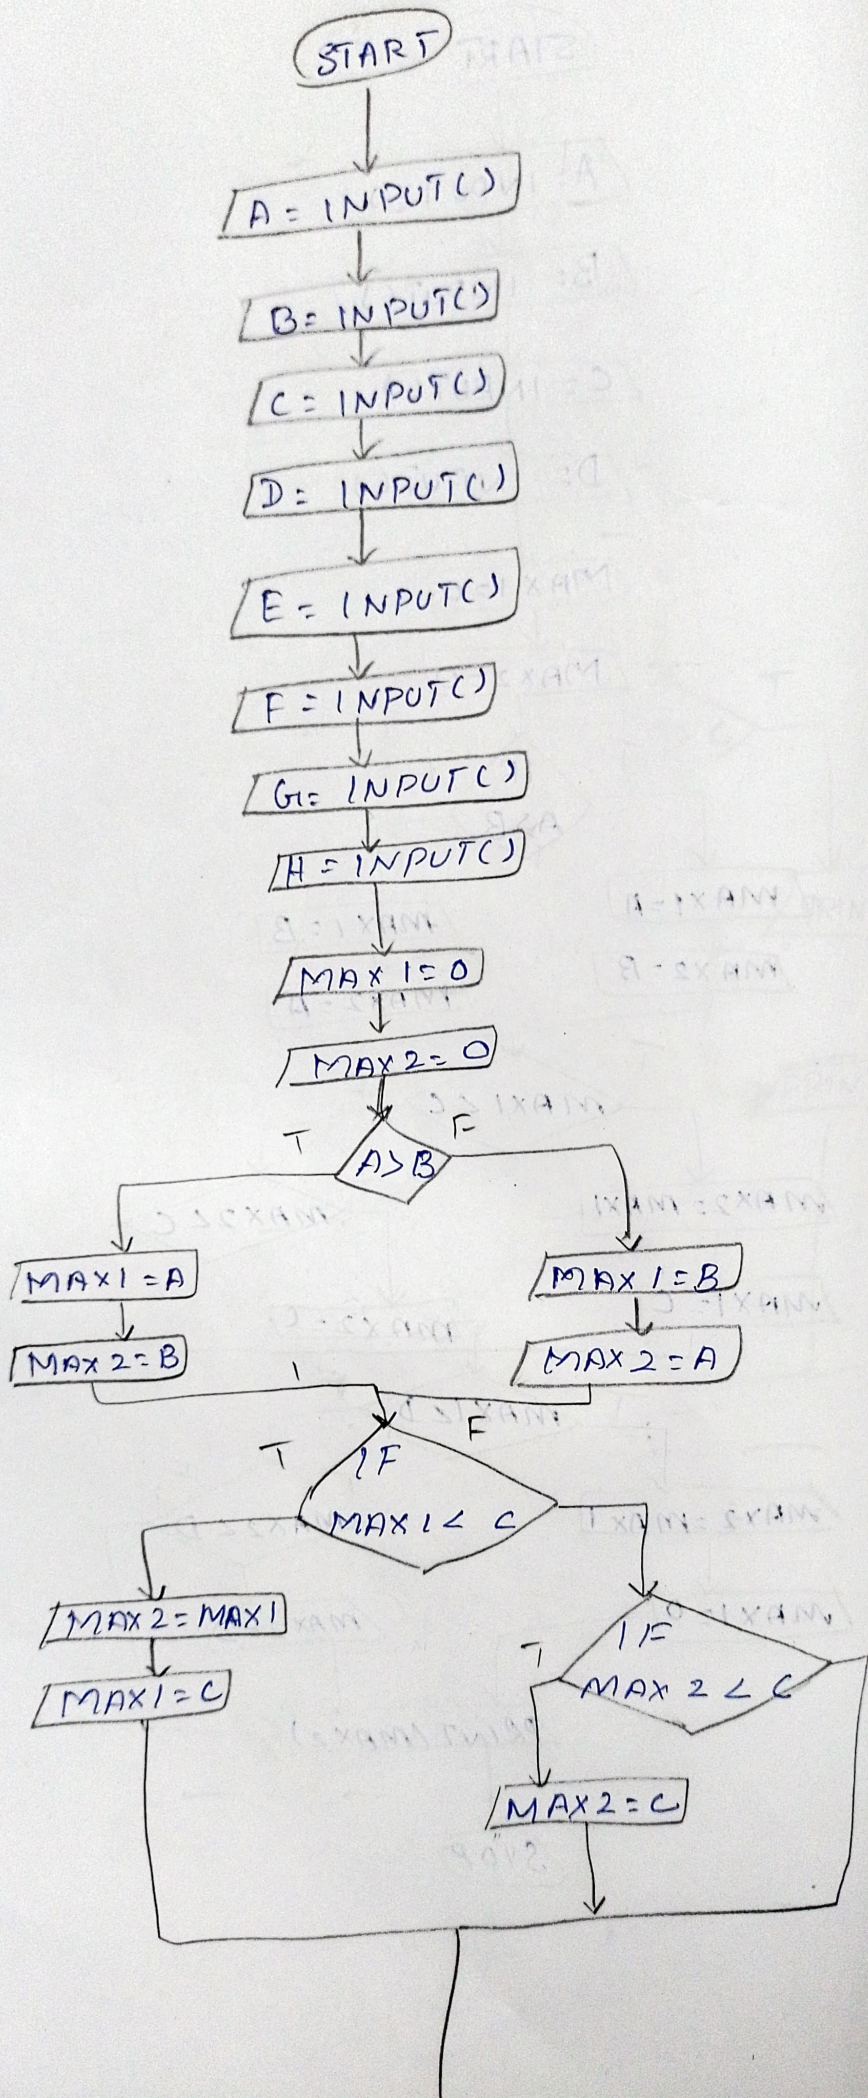 START
A = INPUT()
B = INPUT()
C = INPUT()
D = INPUT()
E = INPUT()
F = INPUT()
G = INPUT()
H = INPUT()
MAX 1 = 0
MAX 2 = 0
T F
A > B
MAX1 = A
MAX 1 = B
MAX 2 = B
MAX 2 = A
T F
IF
MAX 1 < C
MAX 2 = MAX 1
MAX1 = C
T
IF
MAX 2 < C
MAX 2 = C